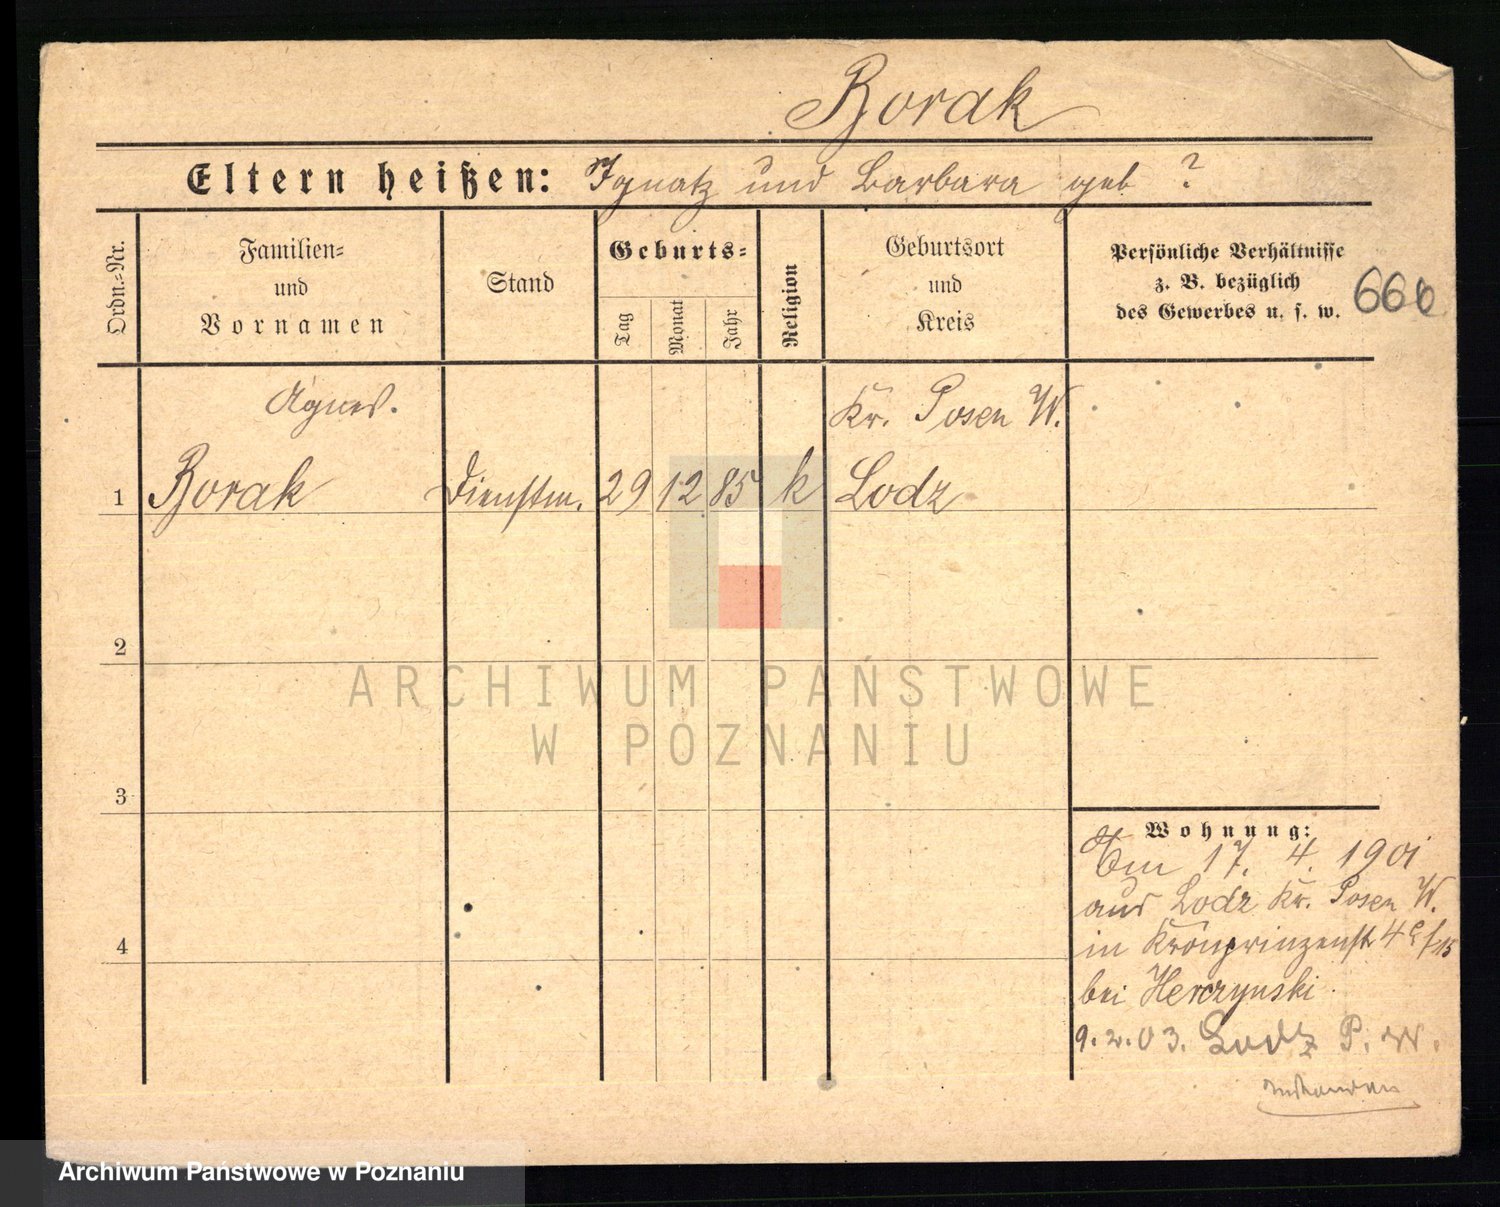 Borak
Eltern heißen: Ignatz und Barbara geb ?
Ordn.=Nr.
Familien=
und
Vornamen
Stand
Geburts=
Tag
Monat
Jahr
Religion
Geburtsort
und
Kreis
Persönliche Verhältnisse
z. B. bezüglich
des Gewerbes u. s. w.
666
Agnes.
Kr. Posen W.
1 Borak Dienstm. 29 12 85 k Lodz
2
3
4
ARCHIWUM PAŃSTWOWE
W POZNANIU
Wohnung:
Am 17. 4. 1901
aus Lodz Kr. Posen W.
in Kronprinzenst 4
bei Herczynski
9. 2. 03. Lodz P. W.
Archiwum Państwowe w Poznaniu